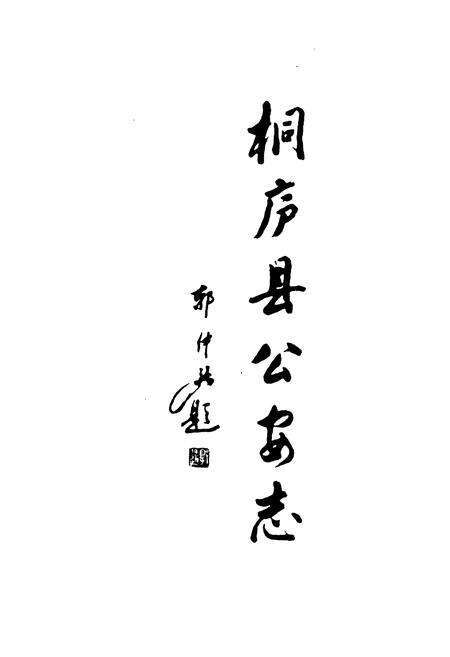 桐庐县公安志
郭仲选题